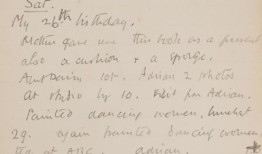 Sat.
My 26th birthday.
Mother gave me this book as a present
also a cushion & a sponge.
Aunt 10/-. Adrian 2 photos
At studio by 10. for Adrian.
Painted dancing women,
2g. again painted dancing women.
Tea at ABC. Adrian.